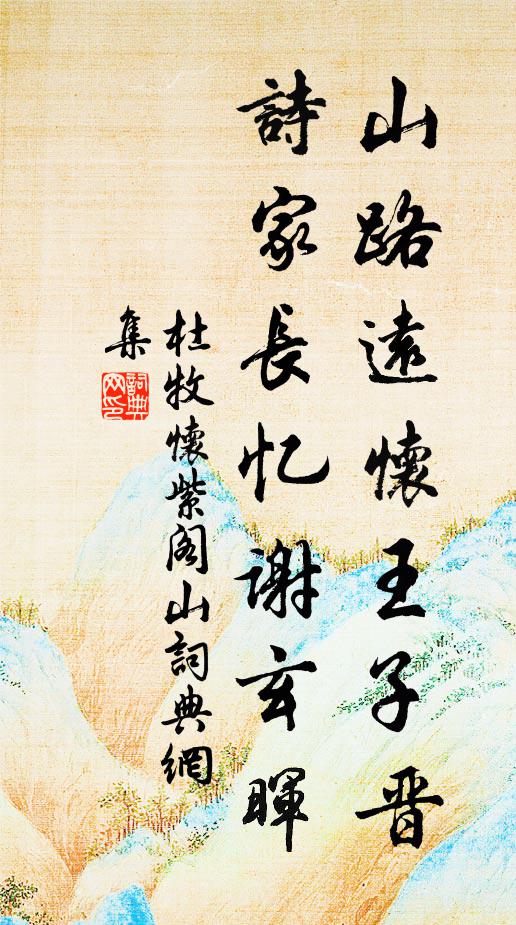 山路遠懷王子晋
詩家長忆謝玄暉
杜牧懷紫阁山詞典網
集
詞典
网印